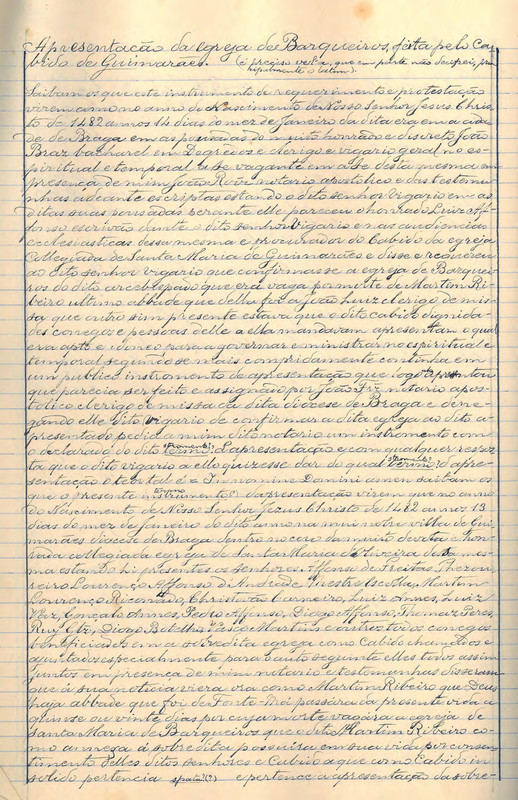 Apresentação da egreja de Barqueiros, feita pelo Ca-
bido de Guimarães. (é preciso vel-a, que em parte não decifrei, prin-
cipalmente o latim).
Saibam os que este instrumento de requerimento e protestação
virem como no anno do Nascimento de Nosso Senhor Jesus Chris-
to de 1482 annos 14 dias do mez de Janeiro da dita era em a cida-
de de Braga em as pousadas do muito honrado e discreto João
Braz bacharel em Degredos e clerigo e vigario geral no es-
piritual e temporal a Sé vagante em a Sé desta mesma em
presença de mim João Roiz notario apostolico e das testemu-
nhas adeante escriptas estando o dito senhor vigario em as
ditas suas pousadas perante elle pareceu o honrado Luiz Af-
fonso escrivão dante o dito senhor vigario e nas audiencias
ecclesiasticas dessa mesma e procurador do Cabido da egreja
Collegiada de Santa Maria de Guimarães e disse e requereu
ao dito senhor vigario que confirmasse a egreja de Barquei-
ros do dito arcebispado que era vaga por morte de Martim Ri-
beiro ultimo abbade que della foi a João Luiz clerigo de mis-
sa que outro sim presente estava que o dito cabido dignida-
des conegos e pessoas delle a ella mandavam apresentar o qual
era apto e idoneo para a governar e ministrar no espiritual e
temporal segundo se mais compridamente continha em
um publico instrumento de apresentação que logo apresentou
que parecia ser feito e assignado por João Frz. notario apos-
tolico clerigo de missa da dita diocese de Braga e dene-
gando elle dito vigario de confirmar a dita egreja ao dito a-
presentado pedia a mim dito notario um instrumento com
o declarado do dito d'apresentação e com qualquer respos-
ta que o dito vigario a ello quizesse dar do qual d'apre-
sentação o teor tal é = In nomine Domini amen saibam os
que o presente instrumento d'apresentação virem que no anno
do Nascimento de Nosso Senhor Jezus Christo de 1482 annos 13
dias do mez de Janeiro do dito anno na mui notre villa de Gui-
marães diocese de Braga dentro no coro da muito devota e hon-
rada collegiada egreja de Santa Maria de Oliveira desta mes-
ma estando hi presentes os senhores Affonso de Freitas, Thezou-
reiro Lourenço Affonso d'Andrade Mestre Escolla, Martim
Lourenço Christovão Carneiro, Luiz Annes, Luiz
Vaz, Gonçalo Annes, Pedro Affonso, Diogo Affonso, Thomaz Peres,
Ruy Glz, Diogo Botelho, Vasco Martins e outros todos conegos
beneficiados em a sobredita egreja como Cabido chamados e
ajuntados especialmente para o auto seguinte elles todos assim
juntos em presença de mim notario e testemunhas disseram
que á sua noticia viera ora como Martim Ribeiro que Deus
haja abbade que foi de Fonte-Boi passára da presente vida a
quinse ou vinte dias por cuja morte vagára a egreja de
Santa Maria de Barqueiros que o dito Martim Ribeiro co-
mo annexa á sobredita possuira em sua vida por consen-
timento delles ditos senhores e Cabido a que como Cabido in
solido pertencia e pertence a apresentação da sobre-